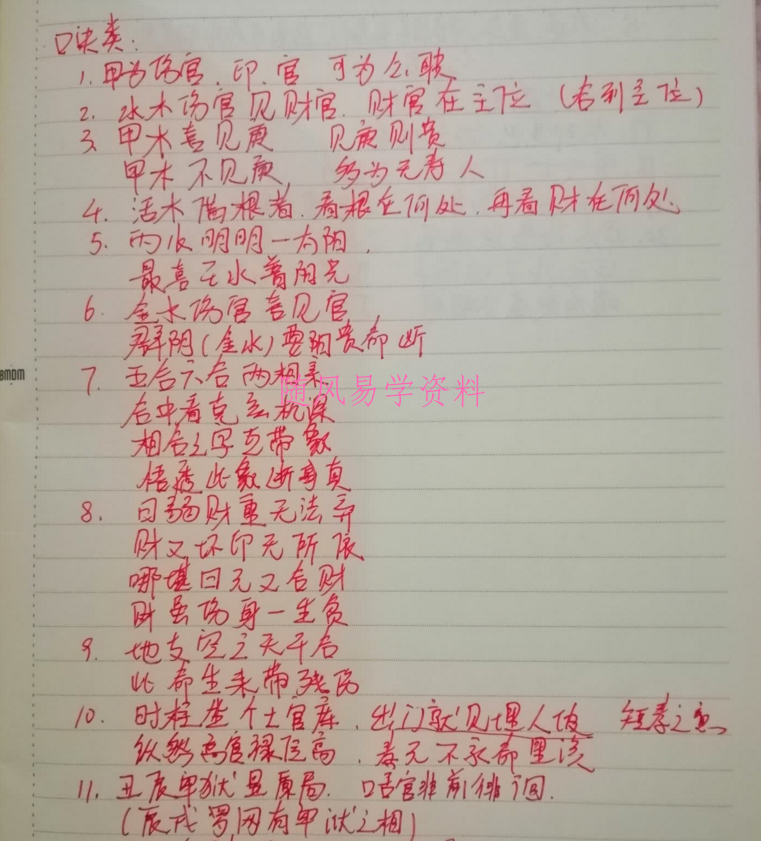 口诀类:
1. 甲为伤官、印、官 可为公职
2. 水木伤官见财官、财官在主位 (右到主位)
3. 甲木喜见庚 见庚则贵
甲木不见庚 多为无寿人
4. 活木偏根着、看根在何处、再看财在何处
5. 丙火明明一太阳、
最喜壬水着阳光
6. 金水伤官喜见官
群阴(金水)要阳贵命断
8mom
7. 五合六合两相亲
随风易学资料
合中看克玄机深
相合之字克带象
悟透此象断事真
8. 日弱财重无法弃
财又坏印无所依
哪堪日元又合财
财虽伤身一生负
9. 地支空亡天干合
此命生来带残伤
10. 时柱坐个土官库、出门就见埋人坡 短寿之意
纵然高官禄位高、寿元不永命里该
11. 丑辰甲狱显原局、唔官非前徘徊
(辰戌罗网有甲狱之相)